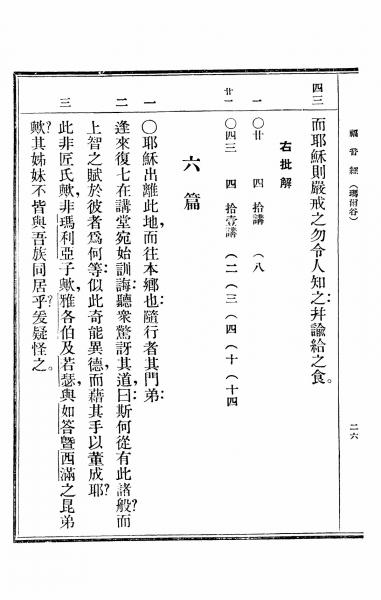 福音經 (瑪爾谷) 二六
四三 而耶穌則嚴戒之勿令人知之:幷諭給之食。
右批解
一 〇廿 四 拾講 (八
廿一 〇四三 四 拾壹講 (二 (三 (四 (十 (十四
六篇
一 〇耶穌出離此地,而往本鄉也:隨行者其門弟:
二 逢來復七在講堂宛始訓誨:聽衆驚訝其道,曰斯何從有此諸般?而
上智之賦於彼者爲何等:似此奇能異德,而藉其手以董成耶?
三 此非匠氏歟,非瑪利亞子歟,雅各伯及若瑟,與如答曁西滿之昆弟
歟?其姊妹不皆與吾族同居乎?爰疑怪之。